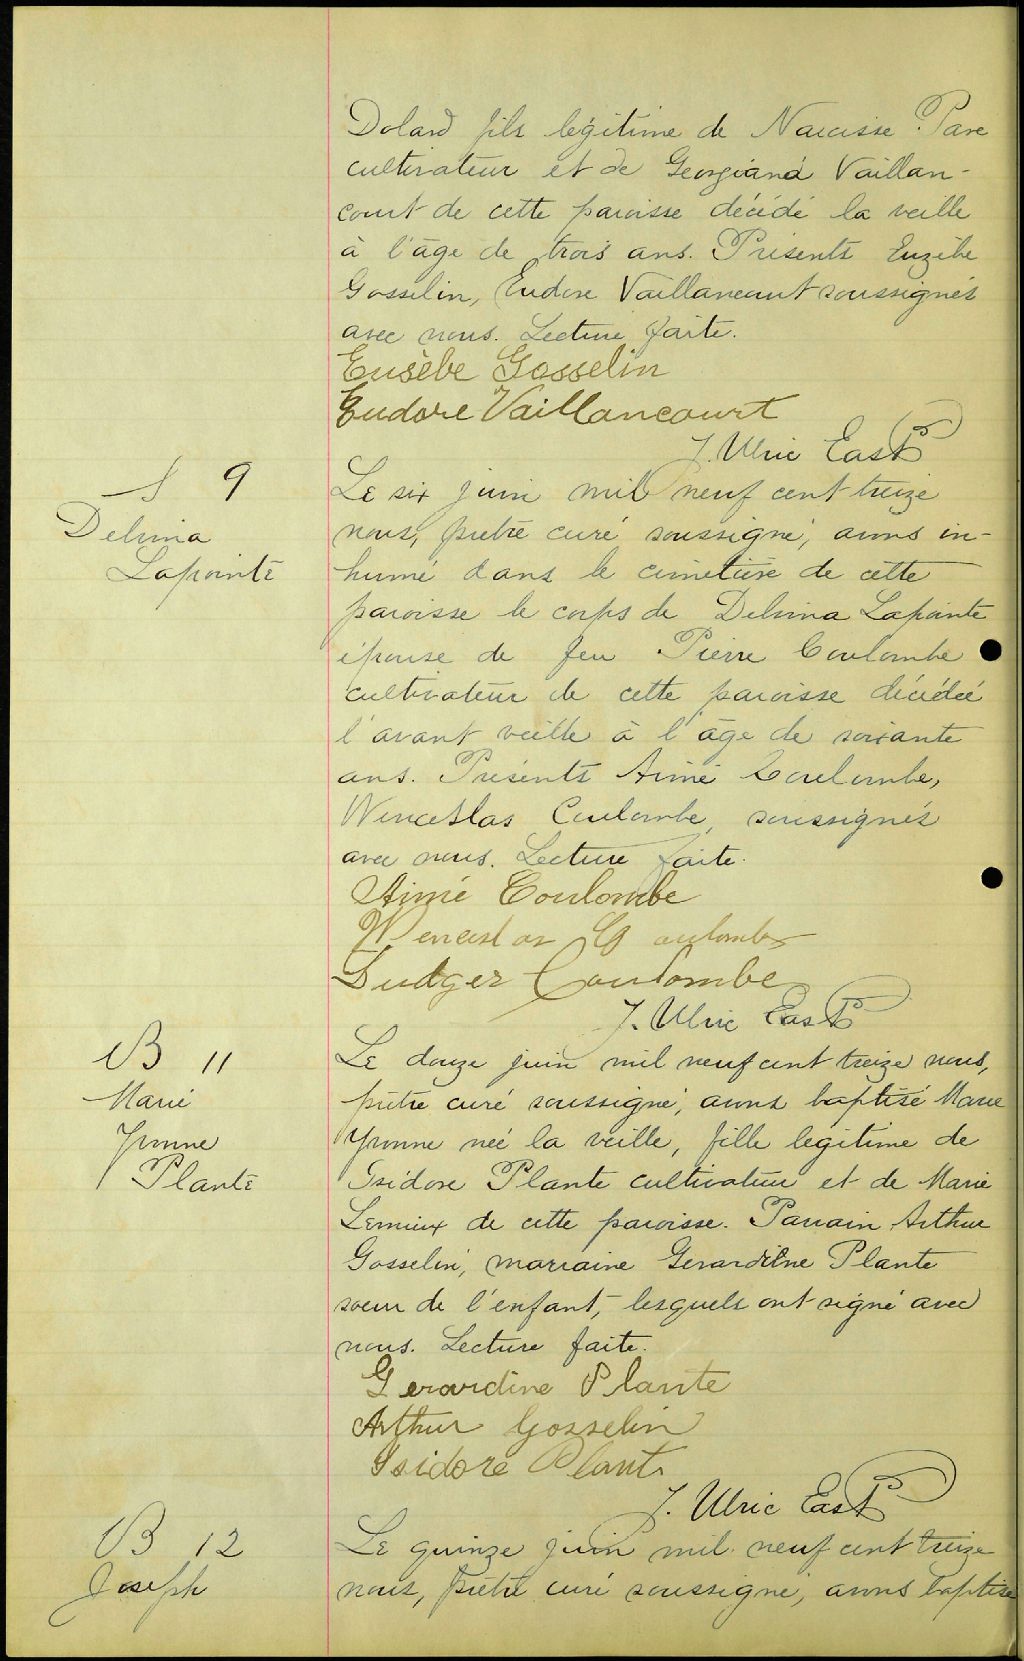 Dolard fils légitime de Narcisse Paré
cultivateur et de Georgiana Vaillan-
court de cette paroisse décédé la veille
à l'âge de trois ans. Présents Euzèbe
Gosselin, Eudore Vaillancourt soussignés
avec nous. Lecture faite.
Eusèbe Gosselin
Eudore Vaillancourt
J. Ulric East Ptre
S 9
Delvina
Lapointe
Le six juin mil neuf cent treize
nous, prêtre curé soussigné, avons in-
humé dans le cimetière de cette
paroisse le corps de Delvina Lapointe
épouse de feu Pierre Coulombe
cultivateur de cette paroisse décédée
l'avant veille à l'âge de soixante
ans. Présents Aimé Coulombe,
Wenceslas Coulombe, soussignés
avec nous. Lecture faite.
Aimé Coulombe
Wenceslas Coulombe
Ludger Coulombe
J. Ulric East Ptre
B 11
Marie
Yvonne
Plante
Le douze juin mil neuf cent treize nous,
prêtre curé soussigné, avons baptisé Marie
Yvonne née la veille, fille légitime de
Isidore Plante cultivateur et de Marie
Lemieux de cette paroisse. Parrain Arthur
Gosselin, marraine Gerardine Plante
soeur de l'enfant, lesquels ont signé avec
nous. Lecture faite.
Gerardine Plante
Arthur Gosselin
Isidore Plante
J. Ulric East Ptre
B 12
Joseph
Le quinze juin mil neuf cent treize
nous, prêtre curé soussigné, avons baptisé